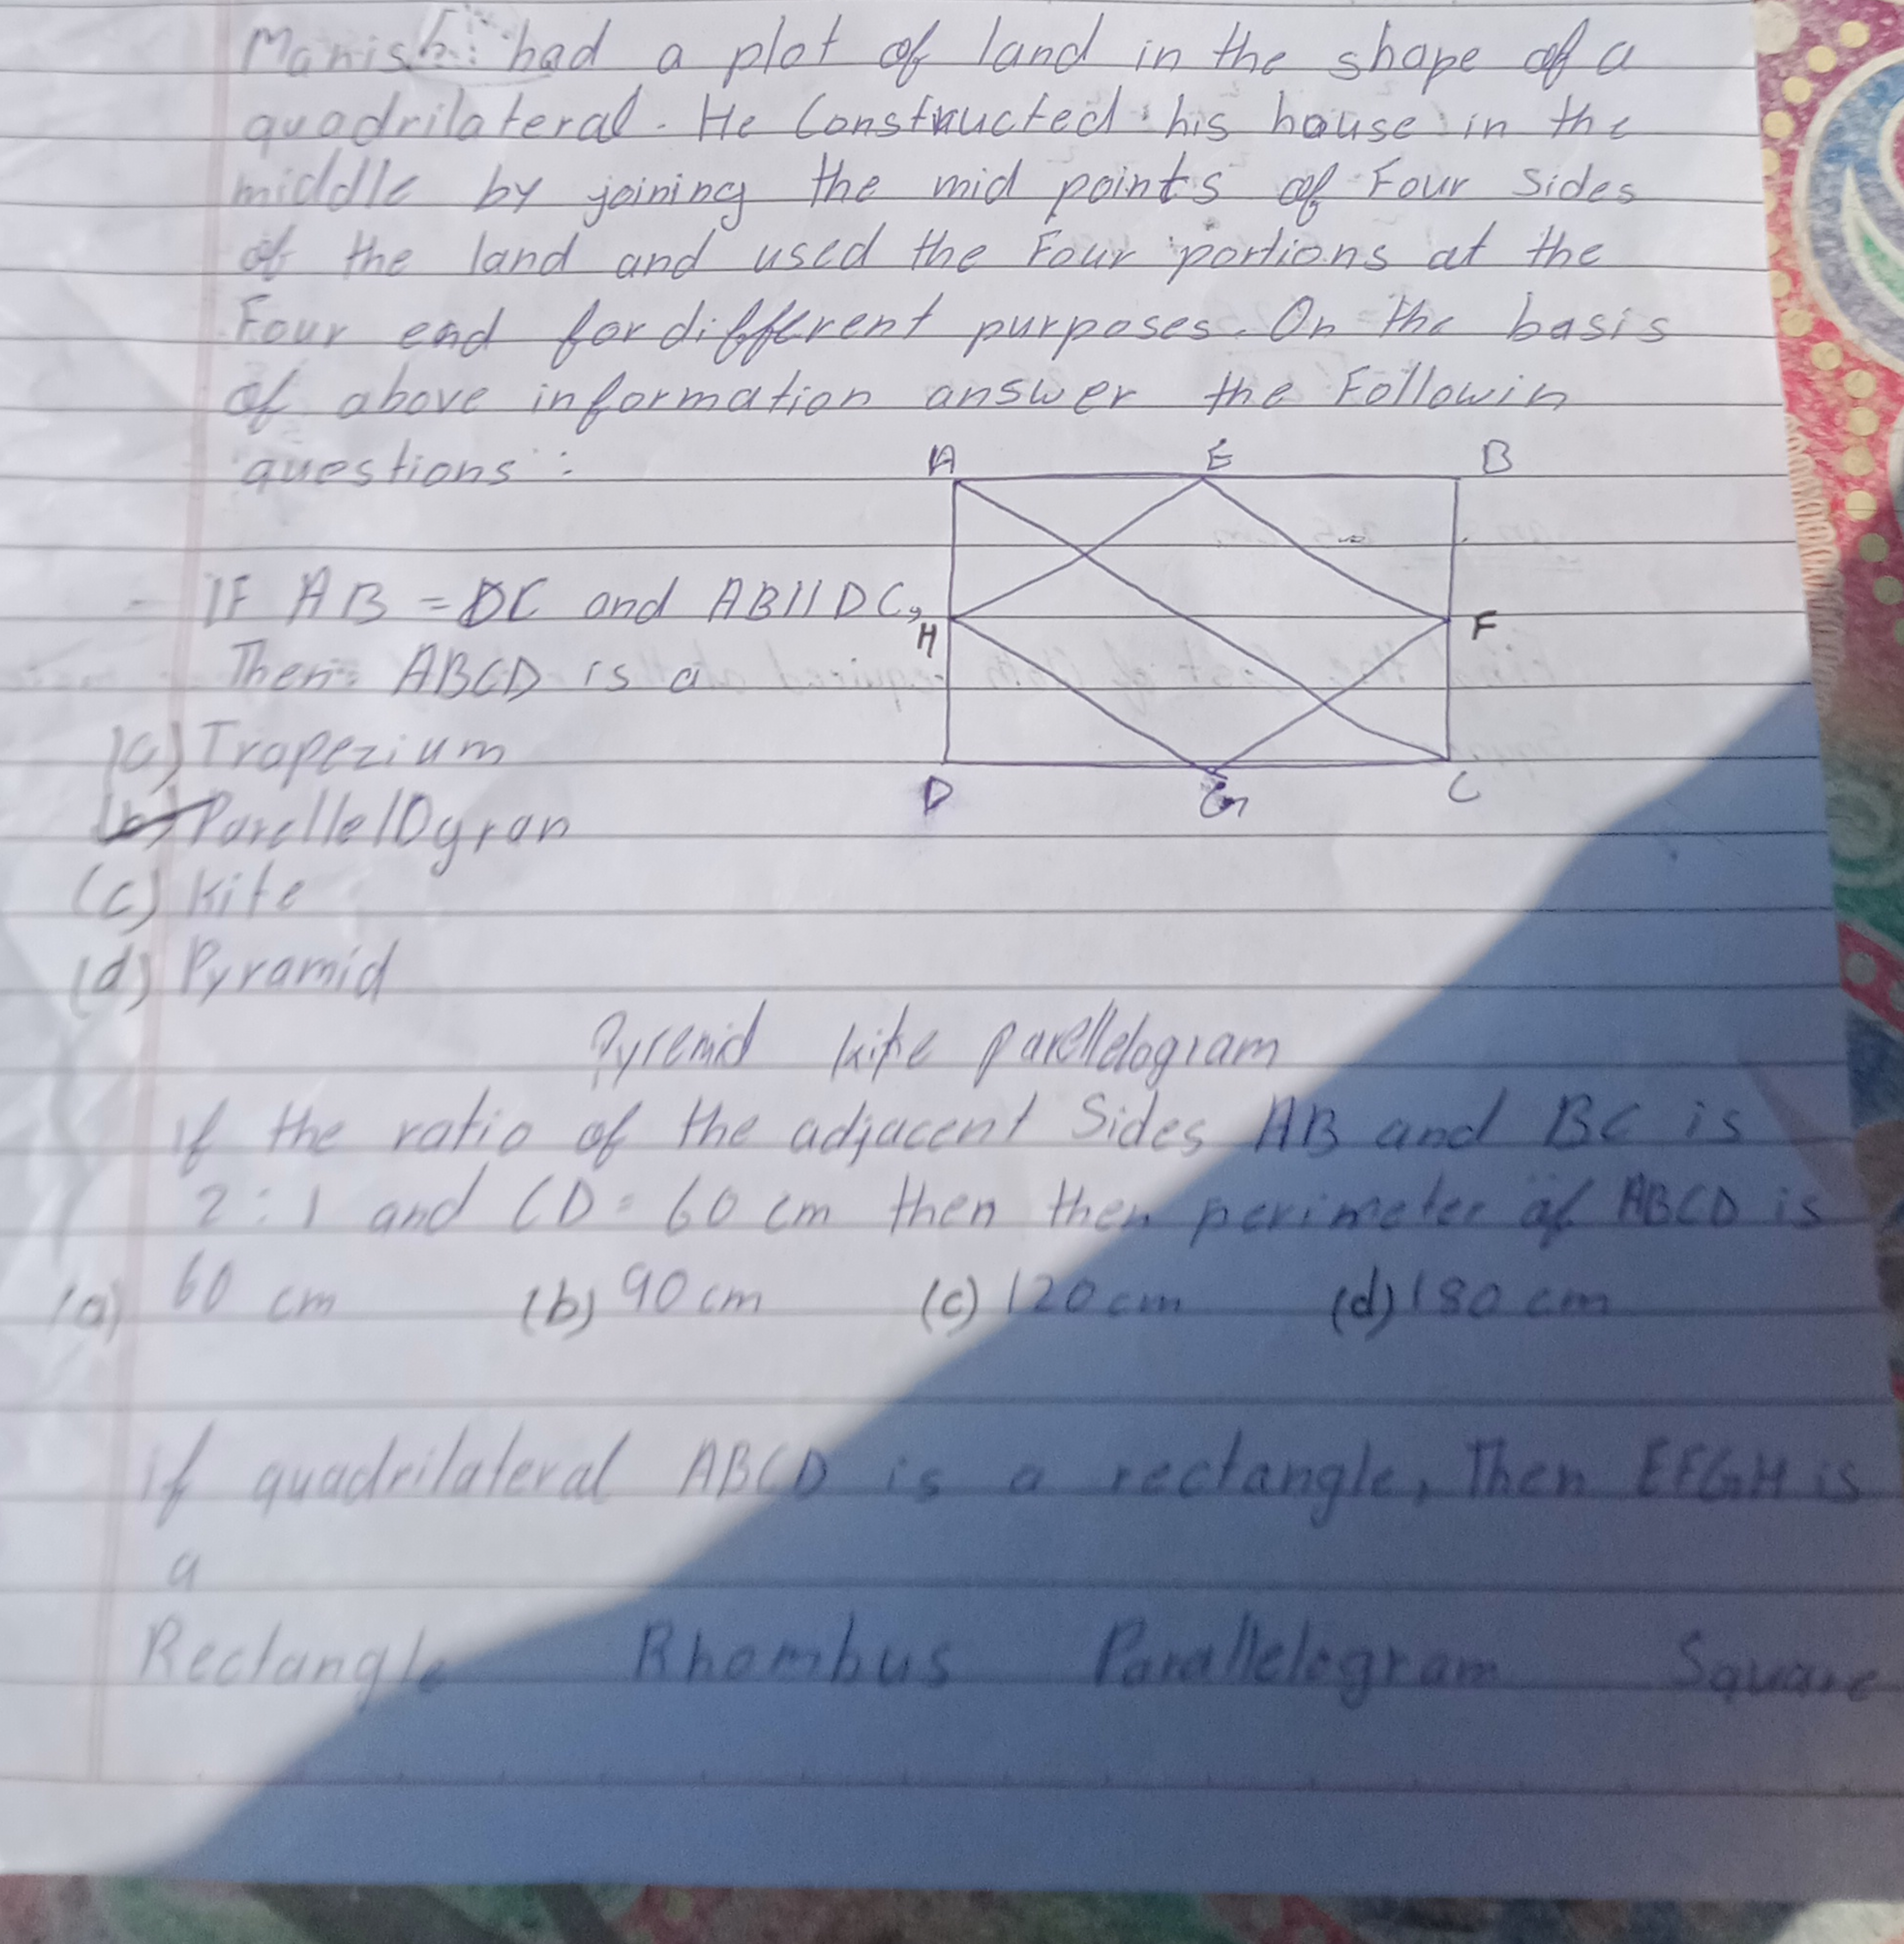 Manish had a plot of land in the shape of a
quadrilateral. He Constructed his house in the
middle by joining the mid points of Four Sides
of the land and used the Four portions at the
Four end for different purposes. On the basis
of above information answer the Followin
questions :
A E B
IF AB = DC and AB || DC,
H F
Then ABCD is a
(a) Trapezium
D G C
(b) Parellelogran
(c) Kite
(d) Pyramid
Pyremid kite parellelogram
if the ratio of the adjacent Sides AB and BC is
2 : 1 and CD = 60 cm then then perimeter of ABCD is
(a) 60 cm (b) 90 cm (c) 120 cm (d) 180 cm
if quadrilateral ABCD is a rectangle, Then EFGH is
a
Rectangle Rhombus Parallelogram Square